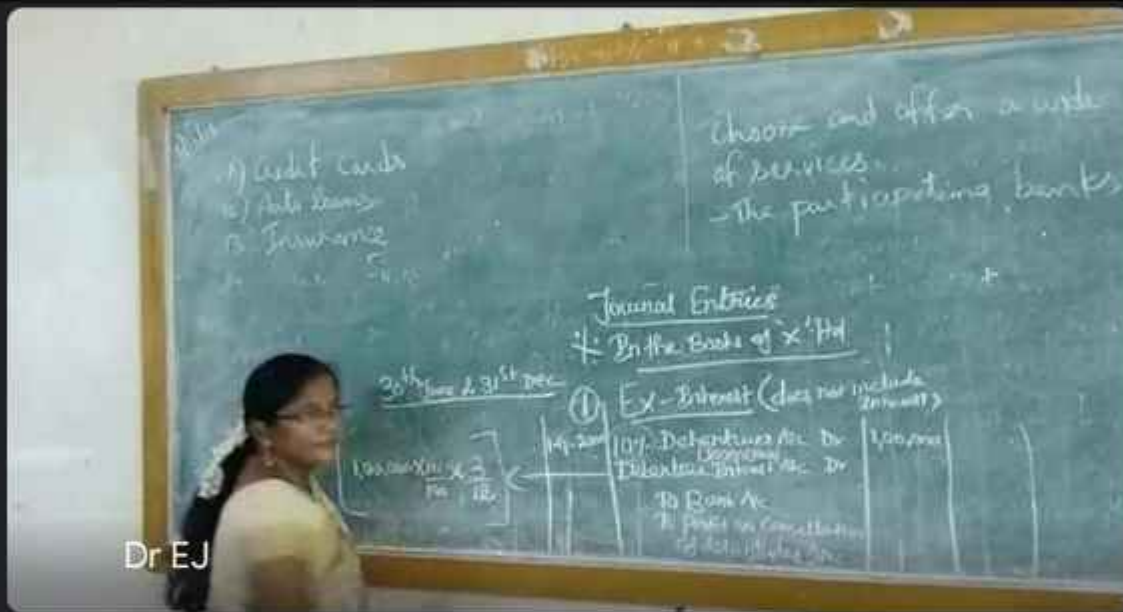 1) Credit cards
2) Auto loans
3. Insurance
choose and offer a wide
of services.
- The participating banks
Journal Entries
In the Books of 'X' Ltd
30th June & 31st Dec
① Ex-Interest (does not include
Interest)
10% Debentures A/c Dr 1,00,000
1,00,000 × 10/100 × 3/12
Debenture Interest A/c Dr
To Bank A/c
To Profit on Cancellation
of debentures A/c
Dr EJ